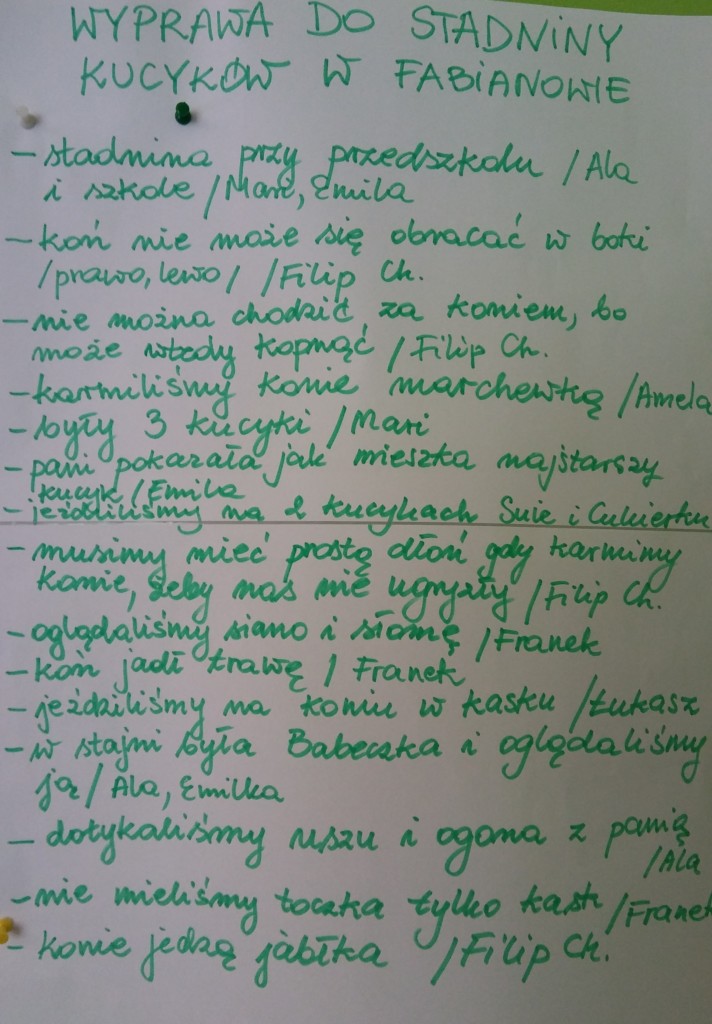 WYPRAWA DO STADNINY
KUCYKÓW W FABIANOWIE
- stadnina przy przedszkolu / Ala
i szkole / Mari, Emila
- koń nie może się obracać w boki
/prawo, lewo/ /Filip Ch.
- nie można chodzić za koniem, bo
może wtedy kopnąć / Filip Ch.
- karmiliśmy konie marchewką /Amela
- były 3 kucyki / Mari
- pani pokazała jak mieszka najstarszy
kucyk / Emila
- jeździliśmy na 2 kucykach Suie i Cukierku
- musimy mieć prostą dłoń gdy karmimy
konie, żeby nas nie ugryzły / Filip Ch.
- oglądaliśmy siano i słomę / Franek
- koń jadł trawę / Franek
- jeździliśmy na koniu w kasku / Łukasz
- w stajni była Babeczka i oglądaliśmy
ją / Ala, Emilka
- dotykaliśmy uszu i ogona z panią
/Ala
- nie mieliśmy toczka tylko kask / Franek
- konie jedzą jabłka / Filip Ch.